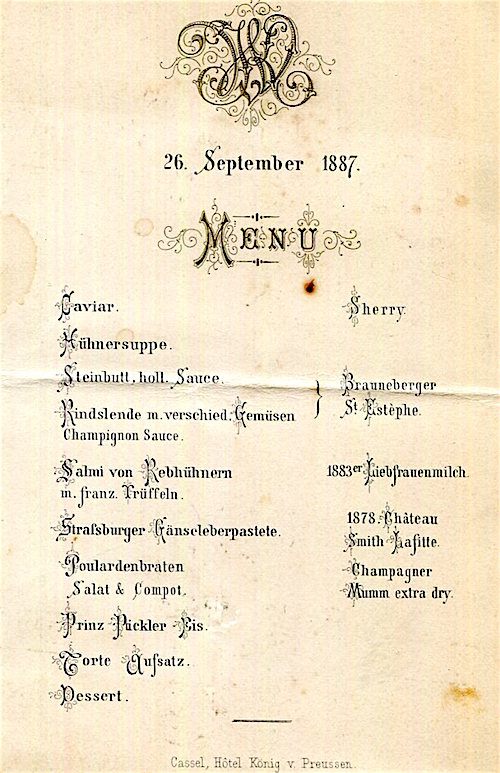 26. September 1887.
MENU
Caviar.
Sherry.
Hühnersuppe.
Steinbutt, holl. Sauce.
Brauneberger
Rindslende m. verschied. Gemüsen
St Estèphe.
Champignon Sauce.
Salmi von Rebhühnern
1883er Liebfrauenmilch.
m. franz. Trüffeln.
Straßburger Gänseleberpastete.
1878. Château
Smith Lafitte.
Poulardenbraten
Champagner
Salat & Compot.
Mumm extra dry.
Prinz Pückler Eis.
Torte Aufsatz.
Dessert.
Cassel, Hôtel König v. Preussen.